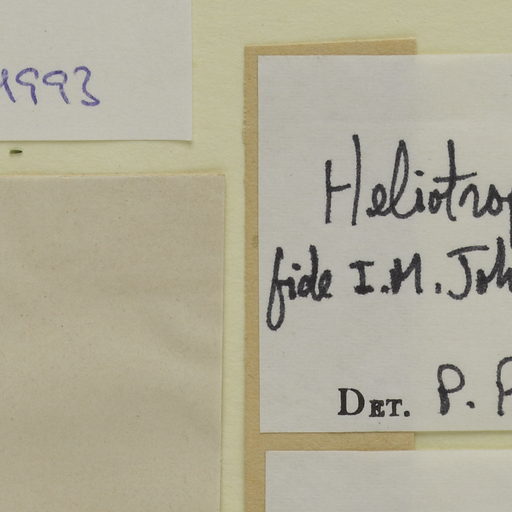 1993
Heliotrop
fide I.M. Joh
DET. P. P